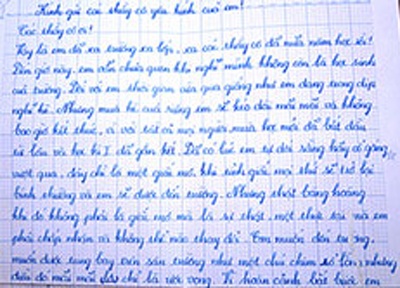 Kính gửi các thầy cô yêu kính của em!
Các thầy cô ơi!
Vậy là em đã xa trường xa lớp, xa các thầy cô đã nửa năm học rồi!
Đến giờ này, em vẫn chưa quen khi nghĩ mình không còn là học sinh
của trường. Đối với em thời gian vừa qua giống như em đang trong dịp
nghỉ hè. Nhưng mùa hè của riêng em sẽ kéo dài mãi mãi và không
bao giờ kết thúc, vì với tất cả mọi người mùa học mới đã bắt đầu
từ lâu và học kì I đã gần hết. Đã có lúc em tự dối rằng hãy cố gắng
vượt qua, đây chỉ là một giấc mơ, khi tỉnh giấc mọi thứ sẽ trở lại
bình thường và em sẽ được đến trường. Nhưng thật bàng hoàng
khi đó không phải là giấc mơ mà là sự thật, một thực tại mà em
phải chấp nhận và không thể nào thay đổi. Em muốn đến trường,
muốn được tung bay trên sân trường như một chú chim sổ lồng nhưng
điều đó mãi mãi chỉ là ước vọng. Vì hoàn cảnh bắt buộc em